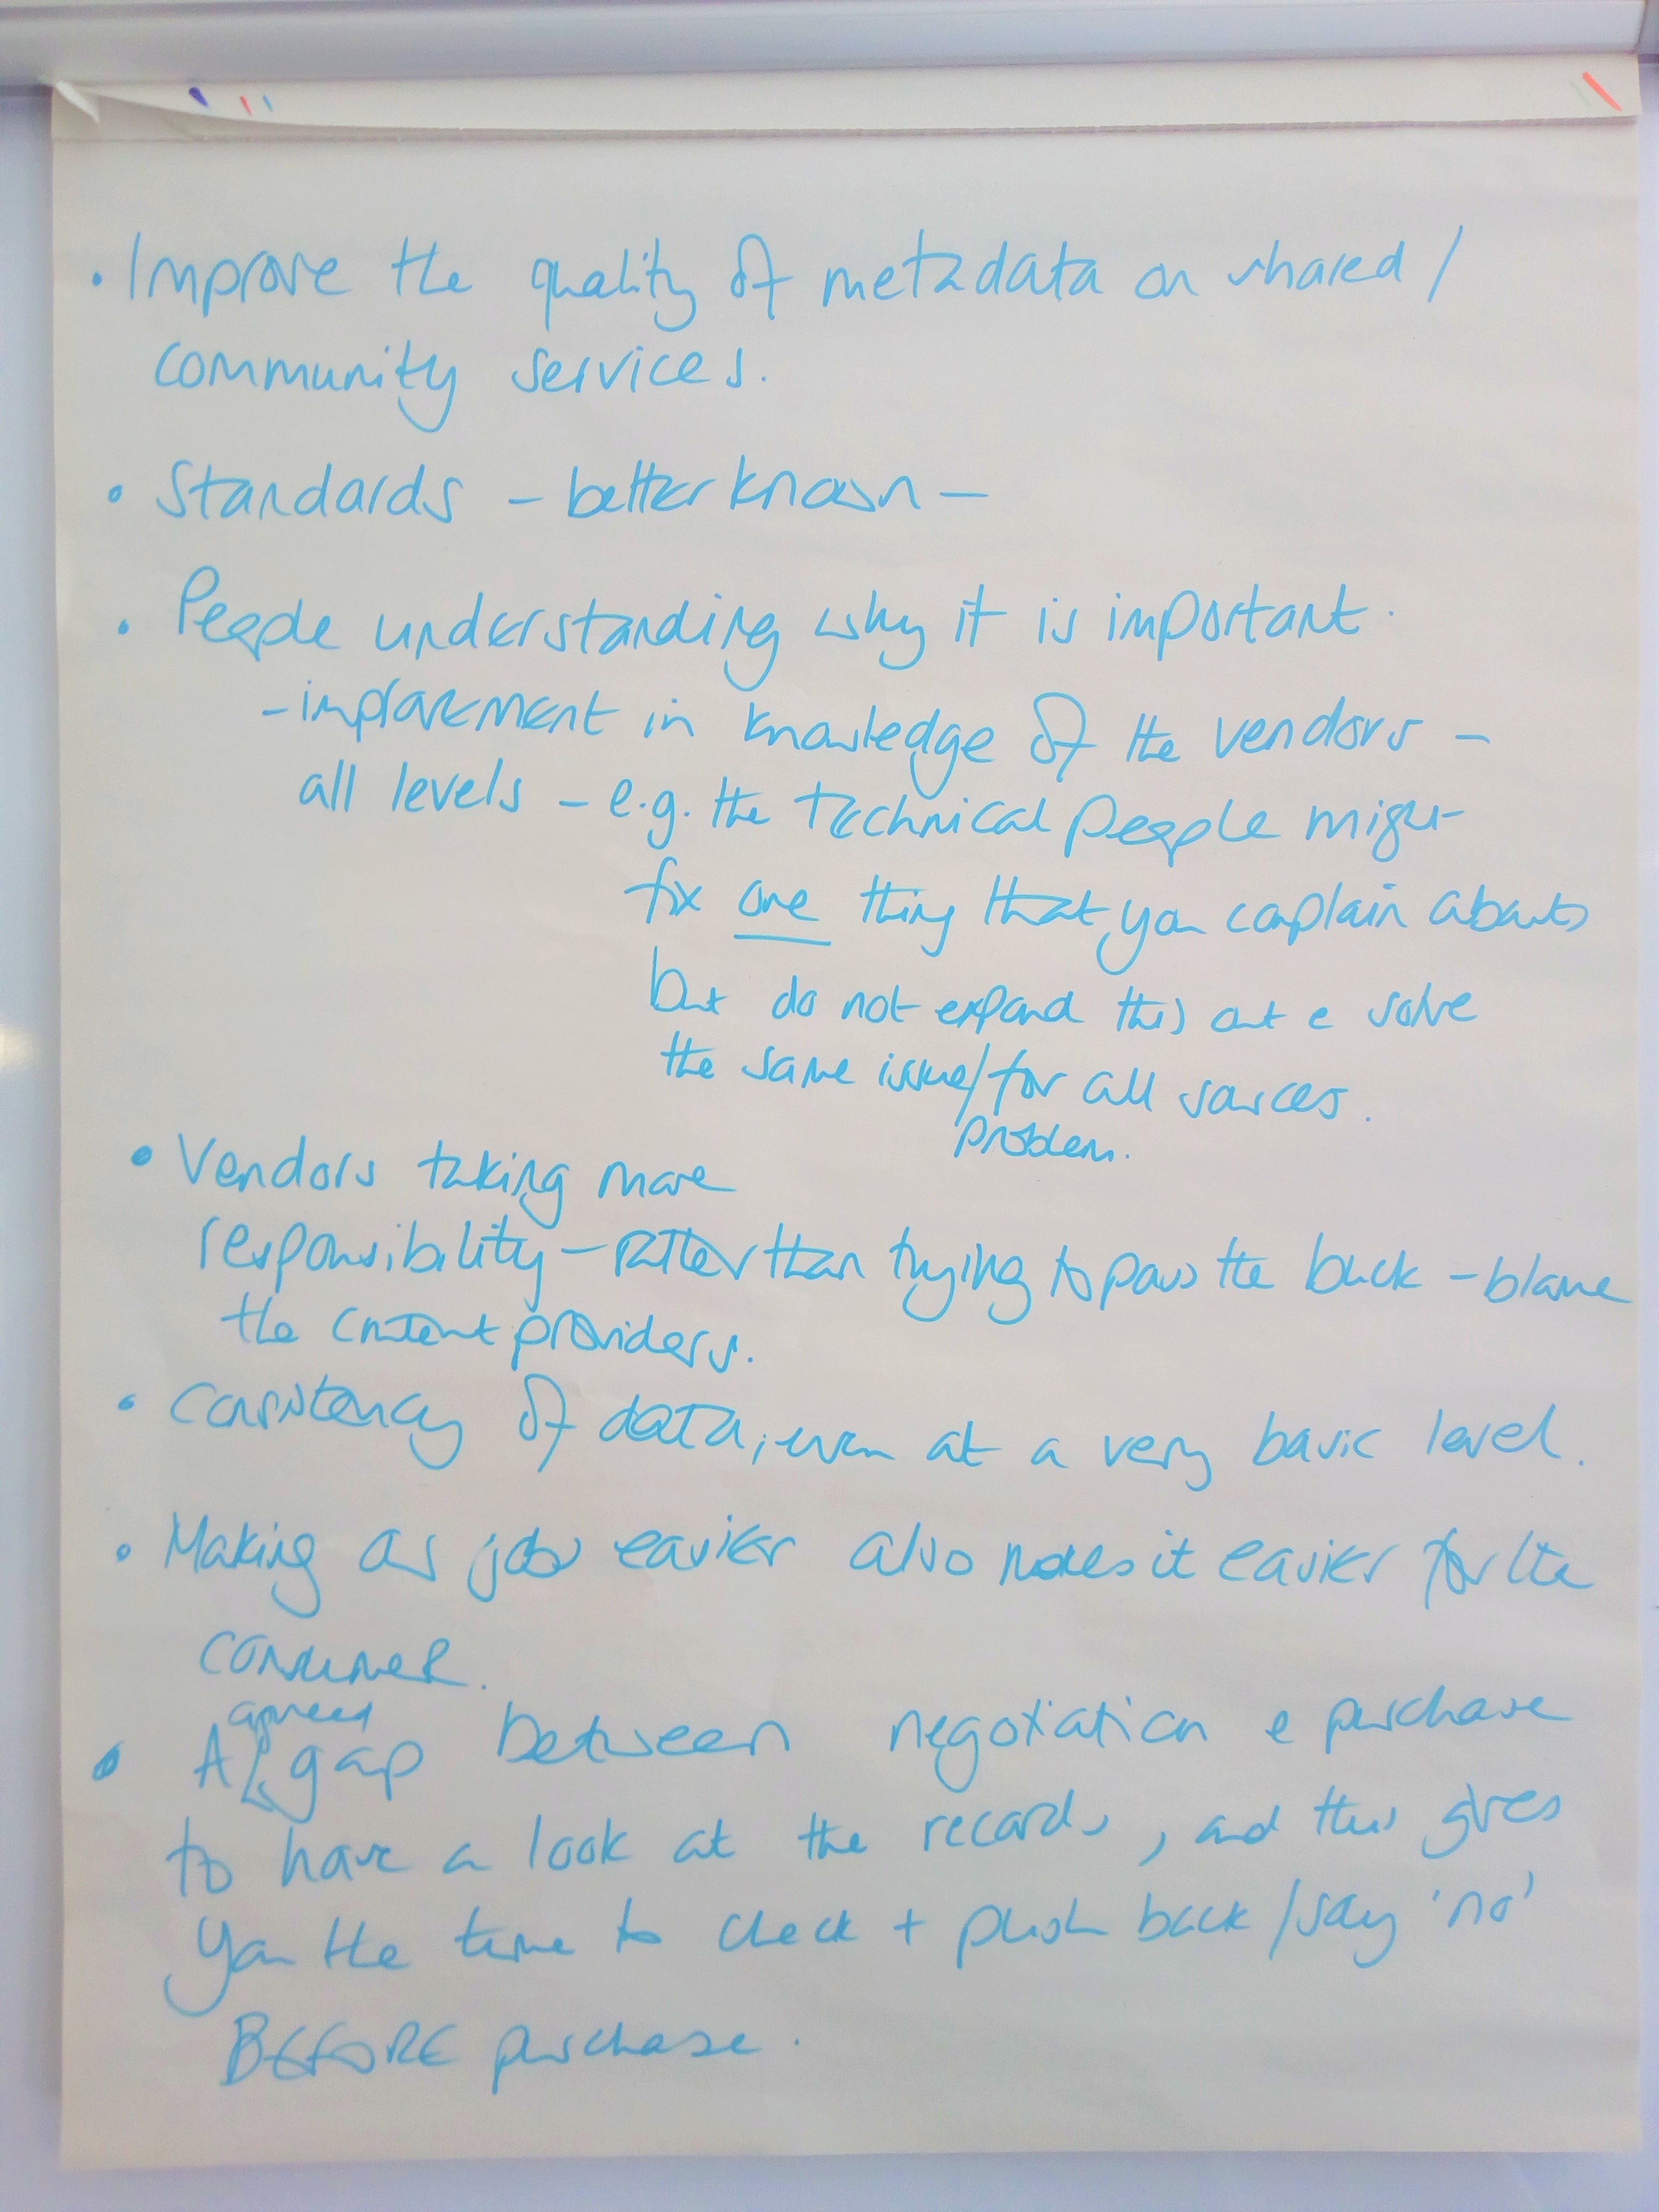 • Improve the quality of metadata on shared /
community services.
• Standards - better known -
• People understanding why it is important.
- improvement in knowledge of the vendors -
all levels - e.g. the technical people might
fix one thing that you complain about,
but do not expand this out & solve
the same issue/for all sources.
problem.
• Vendors taking more
responsibility - rather than trying to pass the buck - blame
the content providers.
• Consistency of data, even at a very basic level.
• Making as job easier also makes it easier for the
consumer.
agreed
• A gap between negotiation & purchase
to have a look at the records, and this gives
you the time to check + push back / say 'no'
BEFORE purchase.